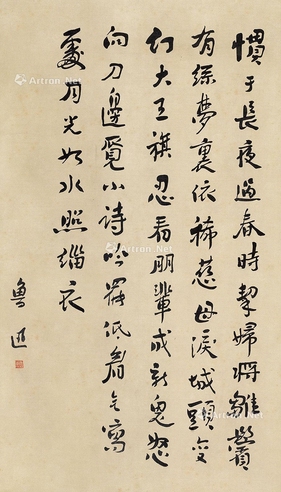 慣于長夜過春時挈婦將雛鬢
有絲夢裏依稀慈母淚城頭變
幻大王旗忍看朋輩成新鬼怒
向刀邊覓小詩吟罷低眉无寫
處月光如水照緇衣
魯迅
Artron.Net
Artron.Net
Artron.Net